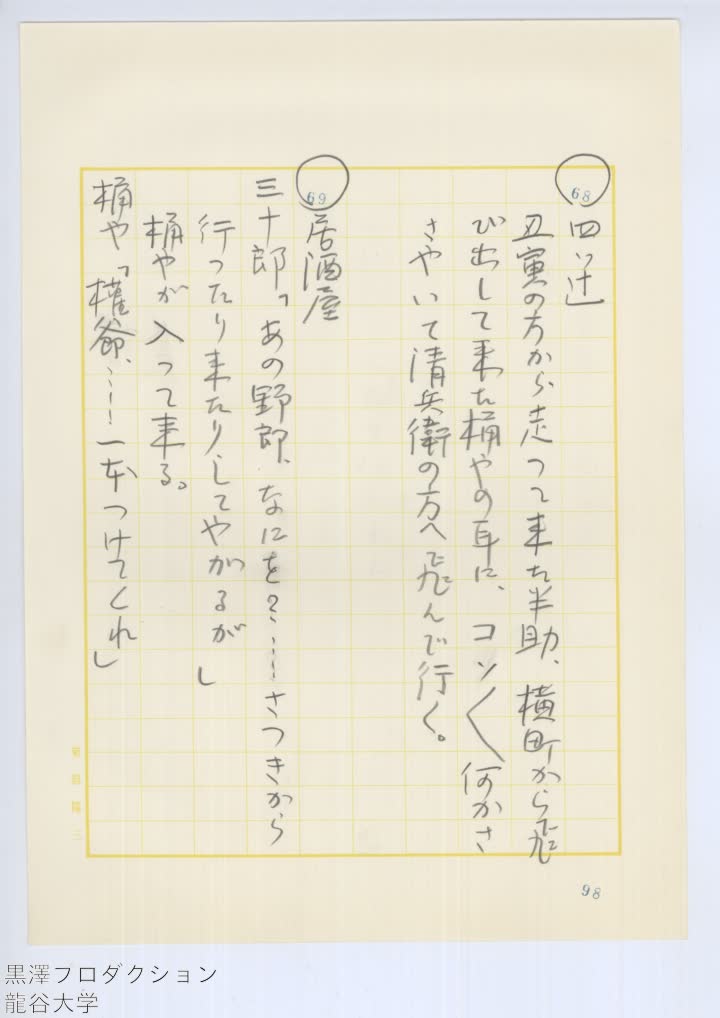 68 四ツ辻
丑寅の方から、走つて来た半助、横町から飛
び出して来た桶やの耳に、コソ〱何かさ
さやいて清兵衛の方へ飛んで行く。
69 居酒屋
三十郎「あの野郎、なにを?……さつきから
行つたり来たりしてやがるが」
桶やが入つて来る。
桶や「権爺、……一本つけてくれ」
菊島隆三
98
黒澤プロダクション
龍谷大学